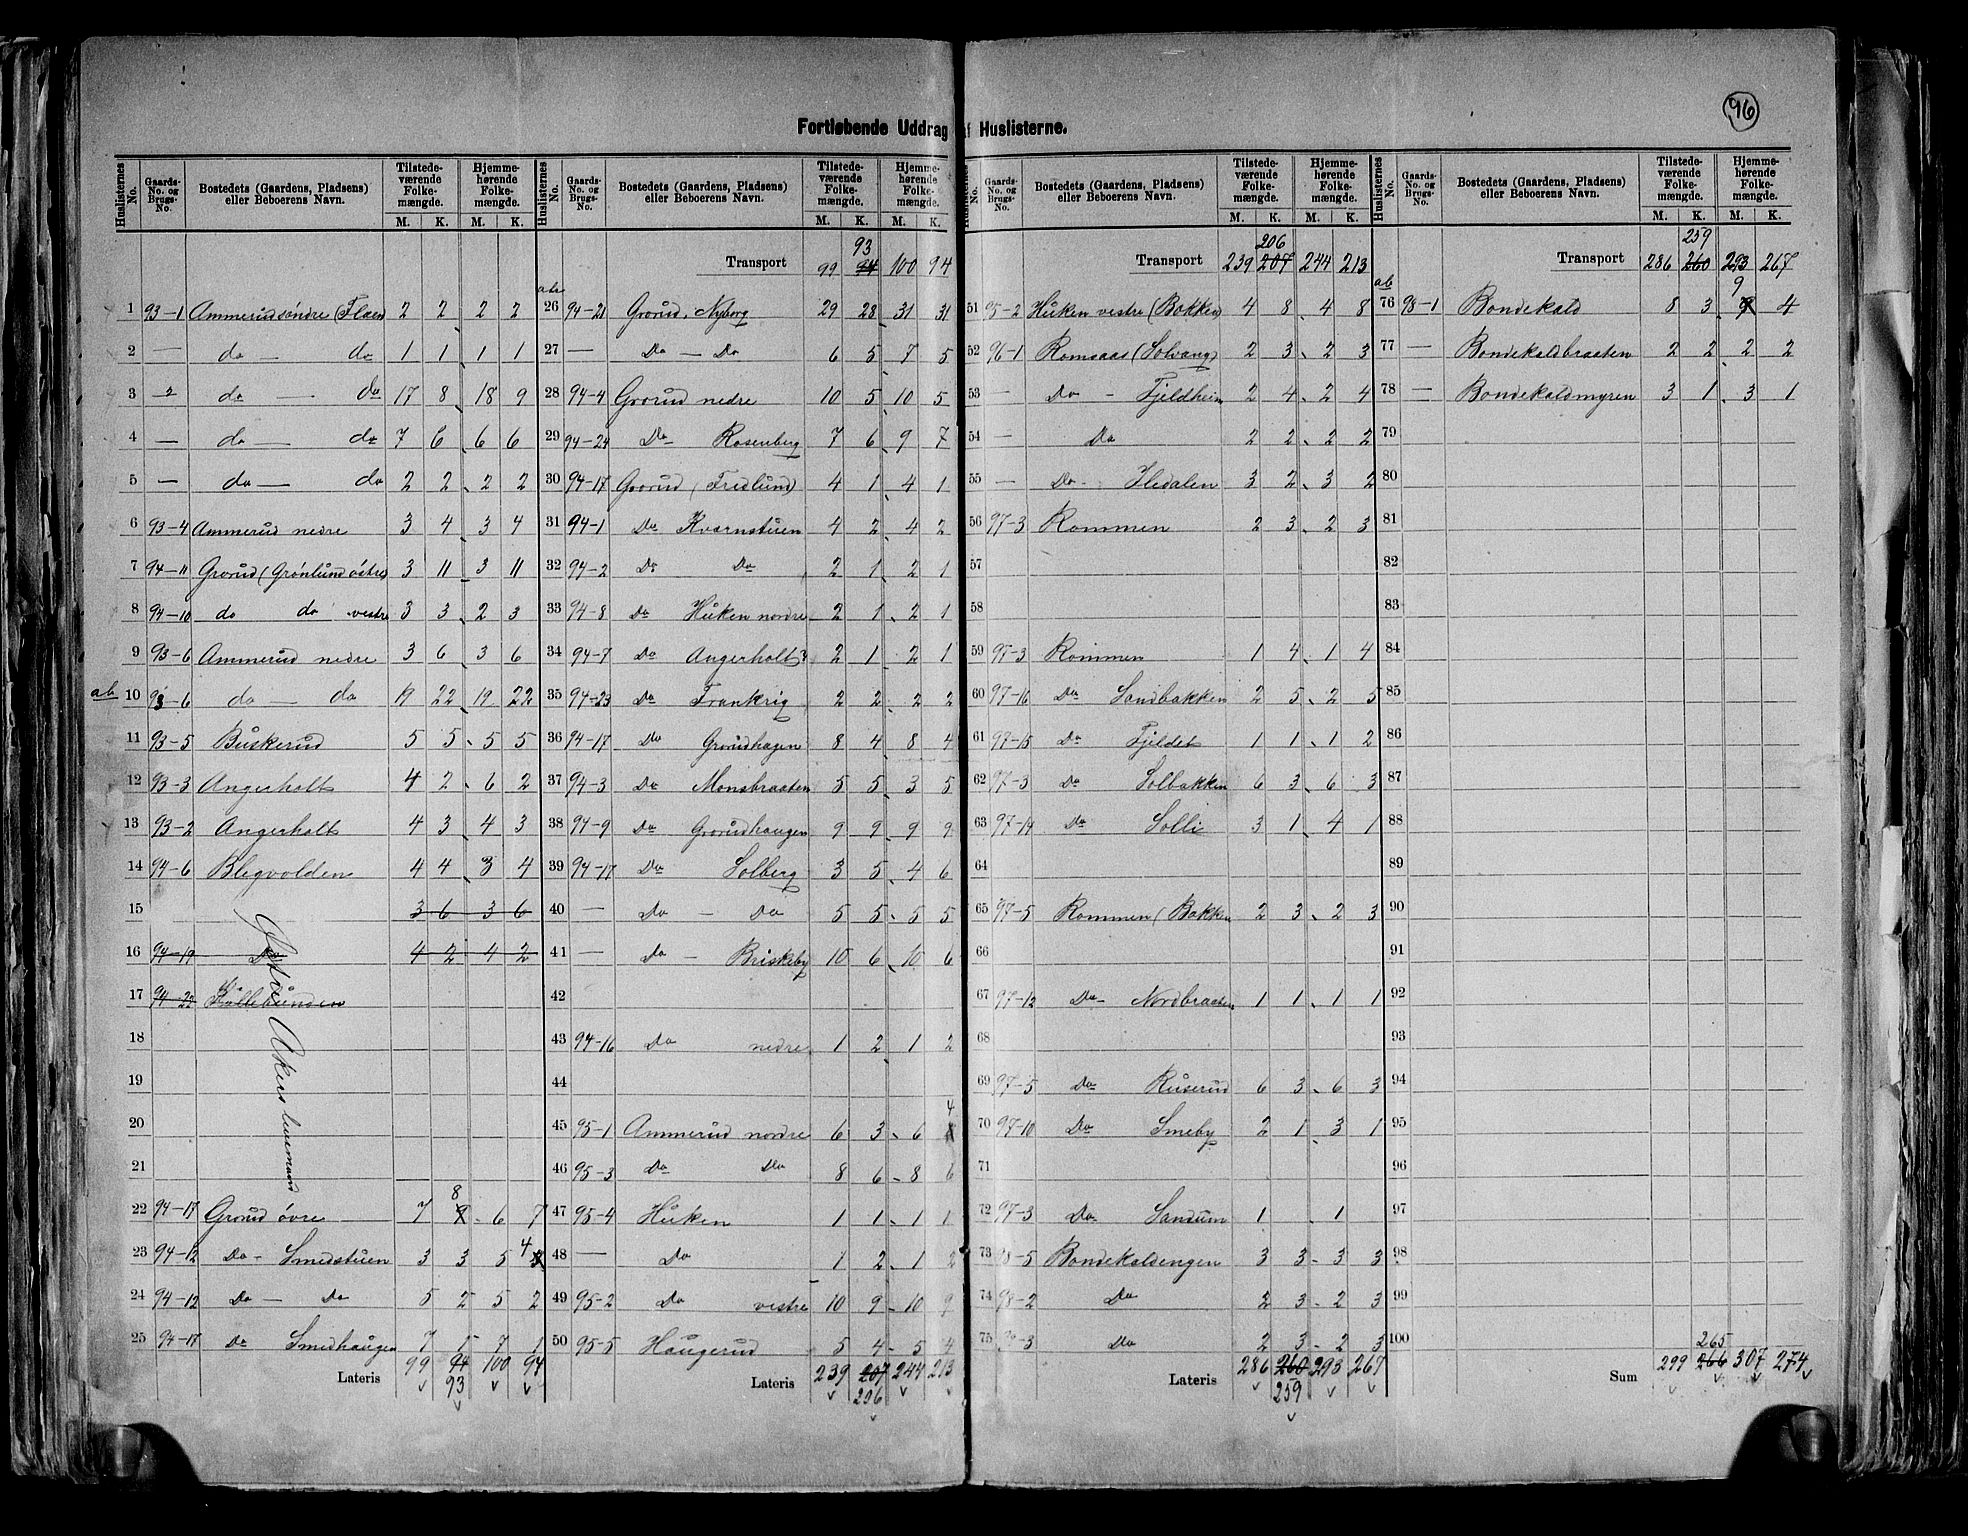 96
Fortløbende Uddrag af Huslisterne.
Huslisternes No. Gaards-No. og Brugs-No. Bostedets (Gaardens, Pladsens) eller Beboerens Navn. Tilstedeværende Folkemængde. M. K. Hjemmehørende Folkemængde. M. K.
1 93-1 Ammerud søndre (Flaen 2 2 2 2
2 — do — do 1 1 1 1
3 -2 do — do 17 8 18 9
4 — do — do 7 6 6 6
5 — do — do 2 2 2 2
6 93-4 Ammerud nedre 3 4 3 4
7 94-11 Grorud (Grønlund østre) 3 11 3 11
8 94-10 do do vestre 3 3 2 3
9 93-6 Ammerud nedre 3 6 3 6
ab 10 93-6 do — do 19 22 19 22
11 93-5 Buskerud 5 5 5 5
12 93-3 Angerholt 4 2 6 2
13 93-2 Angerholt 4 3 4 3
14 94-6 Blegvolden 4 4 3 4
15 3 6 3 6
16 94-19 Do 4 2 4 2
17 94-22 Kollebunden
Østre Akers lensmand
18
19
20
21
22 94-17 Grorud övre 7 8 6 7
23 94-12 Do - Smedstuen 3 3 5 4
24 94-12 Do — Do 5 2 5 2
25 94-17 Do Smedhaugen 7 1 7 1
Lateris 99 94 93 100 94
Huslisternes No. Gaards-No. og Brugs-No. Bostedets (Gaardens, Pladsens) eller Beboerens Navn. Tilstedeværende Folkemængde. M. K. Hjemmehørende Folkemængde. M. K.
Transport 99 94 93 100 94
ab 26 94-21 Grorud, Nyborg 29 28 31 31
27 — Do — Do 6 5 7 5
28 94-4 Grorud nedre 10 5 10 5
29 94-24 Do Rosenberg 7 6 9 7
30 94-17 Grorud (Fredlund) 4 1 4 1
31 94-1 Do Kvarnstuen 4 2 4 2
32 94-2 Do Do 2 1 2 1
33 94-8 Do Huken nordre 2 1 2 1
34 94-7 Do Angerholt 2 1 2 1
35 94-23 Do Frankrig 2 2 2 2
36 94-17 Do Grorudhagen 8 4 8 4
37 94-3 Do Monsbraaten 5 5 3 5
38 94-9 Do Grorudhaugen 9 9 9 9
39 94-17 Do Solberg 3 5 4 6
40 — Do — Do 5 5 5 5
41 — Do — Briskeby 10 6 10 6
42
43 94-16 Do nedre 1 2 1 2
44
45 95-1 Ammerud nordre 6 3 6 4
46 95-3 Do Do 8 6 8 6
47 95-4 Huken 1 1 1 1
48 — Do 1 2 1 2
49 95-2 Do vestre 10 9 10 9
50 95-5 Haugerud 5 4 5 4
Lateris 239 207 206 244 213
Huslisternes No. Gaards-No. og Brugs-No. Bostedets (Gaardens, Pladsens) eller Beboerens Navn. Tilstedeværende Folkemængde. M. K. Hjemmehørende Folkemængde. M. K.
Transport 239 207 206 244 213
51 95-2 Huken vestre (Bakken) 4 8 4 8
52 96-1 Romsaas (Solvang) 2 3 2 3
53 — Do - Fjeldheim 2 4 2 4
54 — Do 2 2 2 2
55 — Do - Iledalen 3 2 3 2
56 97-3 Rommen 2 3 2 3
57
58
59 97-3 Rommen 1 4 1 4
60 97-16 Do Sandbakken 2 5 2 5
61 97-15 Do Fjeldet 1 1 1 2
62 97-3 Do Solbakken 6 3 6 3
63 97-14 Do Solli 3 1 4 1
64
65 97-5 Rommen (Bakken 2 3 2 3
66
67 97-12 Do - Nordbraaten 1 1 1 1
68
69 97-5 Do Ruserud 6 3 6 3
70 97-10 Do Smeby 2 1 3 1
71
72 97-3 Do Sandum 1 1
73 98-5 Bondekaldengen 3 3 3 3
74 98-2 Do 2 3 2 3
75 98-3 Do 2 3 2 3
Lateris 286 260 259 293 267
Huslisternes No. Gaards-No. og Brugs-No. Bostedets (Gaardens, Pladsens) eller Beboerens Navn. Tilstedeværende Folkemængde. M. K. Hjemmehørende Folkemængde. M. K.
Transport 286 260 259 293 267
ab 76 98-1 Bondekald 8 3 9 4
77 — Bondekaldbraaten 2 2 2 2
78 — Bondekaldmyren 3 1 3 1
79
80
81
82
83
84
85
86
87
88
89
90
91
92
93
94
95
96
97
98
99
100
Sum 299 266 265 307 274